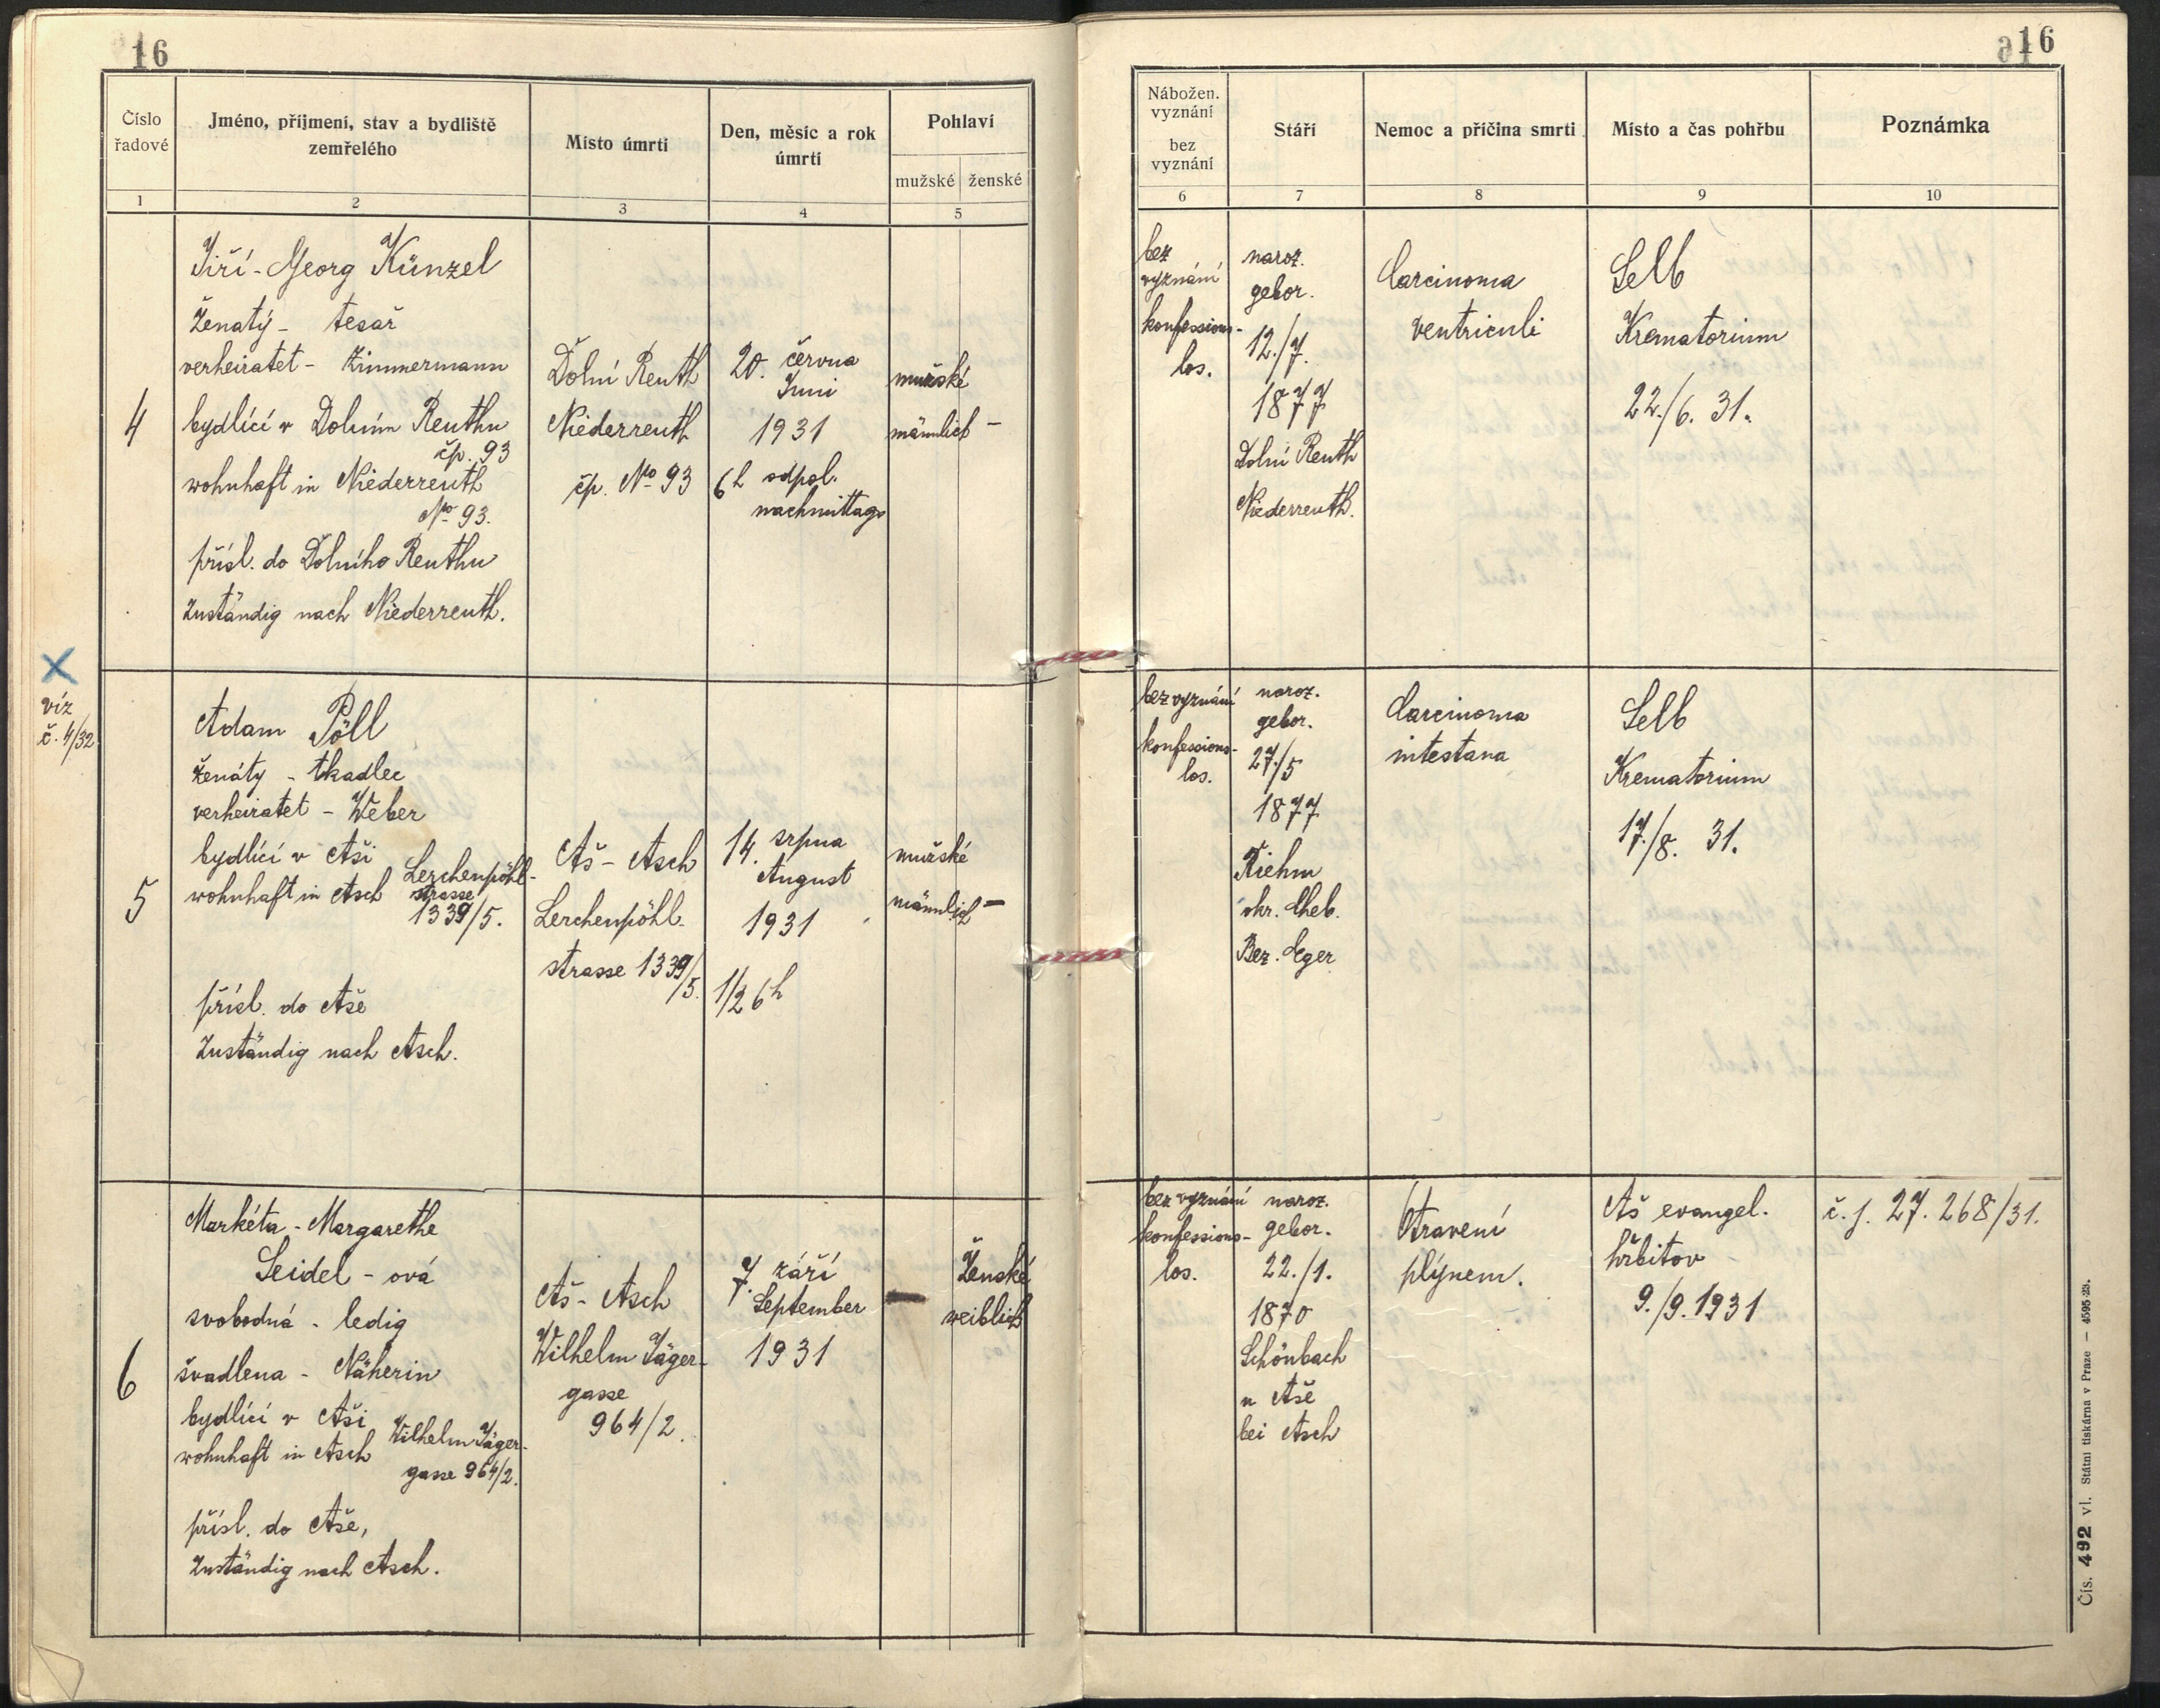 16
Číslo
řadové
Jméno, příjmení, stav a bydliště
zemřelého
Místo úmrtí
Den, měsíc a rok
úmrtí
Pohlaví
mužské
ženské
1
2
3
4
5
4
Jiří - Georg Künzel
ženatý - tesař
verheiratet - Zimmermann
bydlící v Dolním Reuthu
čp. 93
wohnhaft in Niederreuth
No 93.
přísl. do Dolního Reuthu
zuständig nach Niederreuth.
Dolní Reuth
Niederreuth
čp. No 93
20. června
Juni
1931
6h odpol.
nachmittags
mužské
männlich -
X
viz
č. 4/32
5
Adam Pöll
ženatý - tkadlec
verheiratet - Weber
bydlící v Aši
wohnhaft in Asch
Lerchenpöhl-
strasse
1339/5.
přísl. do Aše
zuständig nach Asch.
Aš - Asch
Lerchenpöhl-
strasse 1339/5.
14. srpna
August
1931
1/2 6h
mužské
männlich -
6
Markéta - Margarethe
Seidel - ová
svobodná - ledig
švadlena - Näherin
bydlící v Aši
wohnhaft in Asch
Wilhelm Jäger-
gasse 964/2.
přísl. do Aše,
zuständig nach Asch.
Aš - Asch
Wilhelm Jäger-
gasse
964/2.
7. září
September
1931
-
ženské
weiblich
16
Nábožen.
vyznání
bez
vyznání
Stáří
Nemoc a příčina smrti
Místo a čas pohřbu
Poznámka
6
7
8
9
10
bez
vyznání
konfessions-
los.
naroz.
gebor.
12./7.
1877
Dolní Reuth
Niederreuth.
Carcinoma
ventriculi
Selb
Krematorium
22./6. 31.
bez vyznání
konfessions-
los.
naroz.
gebor.
27./5
1877
okr. Cheb.
Bez. Eger
Carcinoma
intestana
Selb
Krematorium
17./8. 31.
bez vyznání
konfessions-
los.
naroz.
gebor.
22./1.
1870
Schönbach
u Aše
bei Asch
Otravení
plýnem.
Aš evangel.
hřbitov
9./9. 1931
č.j. 27.268/31.
Čís. 492 vl. Státní tiskárna v Praze — 4595-28.